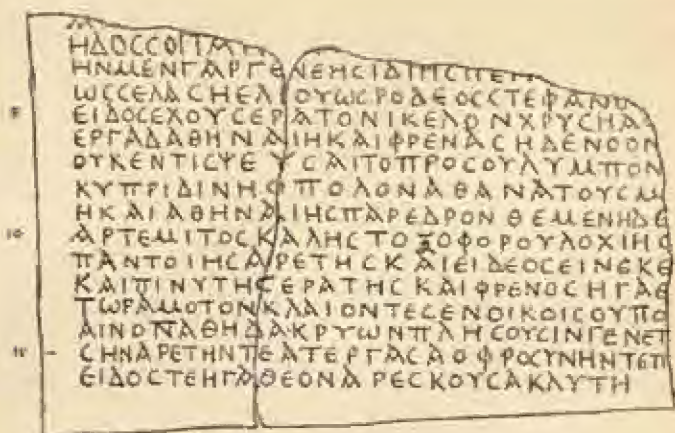 ΗΔΟϹϹΟΠΑΗ
ΗΝΜΕΝΓΑΡΓΕΝΕΗϹΙΔΙΗϹΠΕΗ
ωϹϹΕΛΑϹΗΕΛΙΟΥωϹΡΟΔΕΟϹϹΤΕΦΑΝΟ
5 ΕΙΔΟϹΕΧΟΥϹΕΡΑΤΟΝΙΚΕΛΟΝΧΡΥϹΗΑ
ΕΡΓΑΔΑΘΗΝΑΙΗΚΑΙΦΡΕΝΑϹΗΔΕΝΟΟΝ
ΟΥΚΕΝΤΙϹΨΕΥϹΑΙΤΟΠΡΟϹΟΥΛΥΜΠΟΝ
ΚΥΠΡΙΔΙΝΗΟΠΟΛΟΝΑΘΑΝΑΤΟΥϹΜ
ΗΚΑΙΑΘΗΝΑΙΗϹΠΑΡΕΔΡΟΝΘΕΜΕΝΗΔΕ
10 ΑΡΤΕΜΙΤΟϹΚΑΛΗϹΤΟΞΟΦΟΡΟΥΛΟΧΙΗϹ
ΠΑΝΤΟΙΗϹΑΡΕΤΗϹΚΑΙΕΙΔΕΟϹΕΙΝΕΚΕ
ΚΑΙΠΙΝΥΤΗϹΕΡΑΤΗϹΚΑΙΦΡΕΝΟϹΗΓΑΕ
ΤωΡΑΜΟΤΟΝΚΛΑΙΟΝΤΕϹΕΝΟΙΚΟΙϹΟΥΠΟ
ΑΙΝΟΠΑΘΗΔΑΚΡΥωΝΠΛΗϹΟΥϹΙΝΓΕΝΕΠ
15 ϹΗΝΑΡΕΤΗΝΤΕΑΤΕΡΓΑϹΑΟΦΡΟϹΥΝΗΝΤΕΠ
ΕΙΔΟϹΤΕΗΓΑΘΕΟΝΑΡΕϹΚΟΥϹΑΚΛΥΤΗ